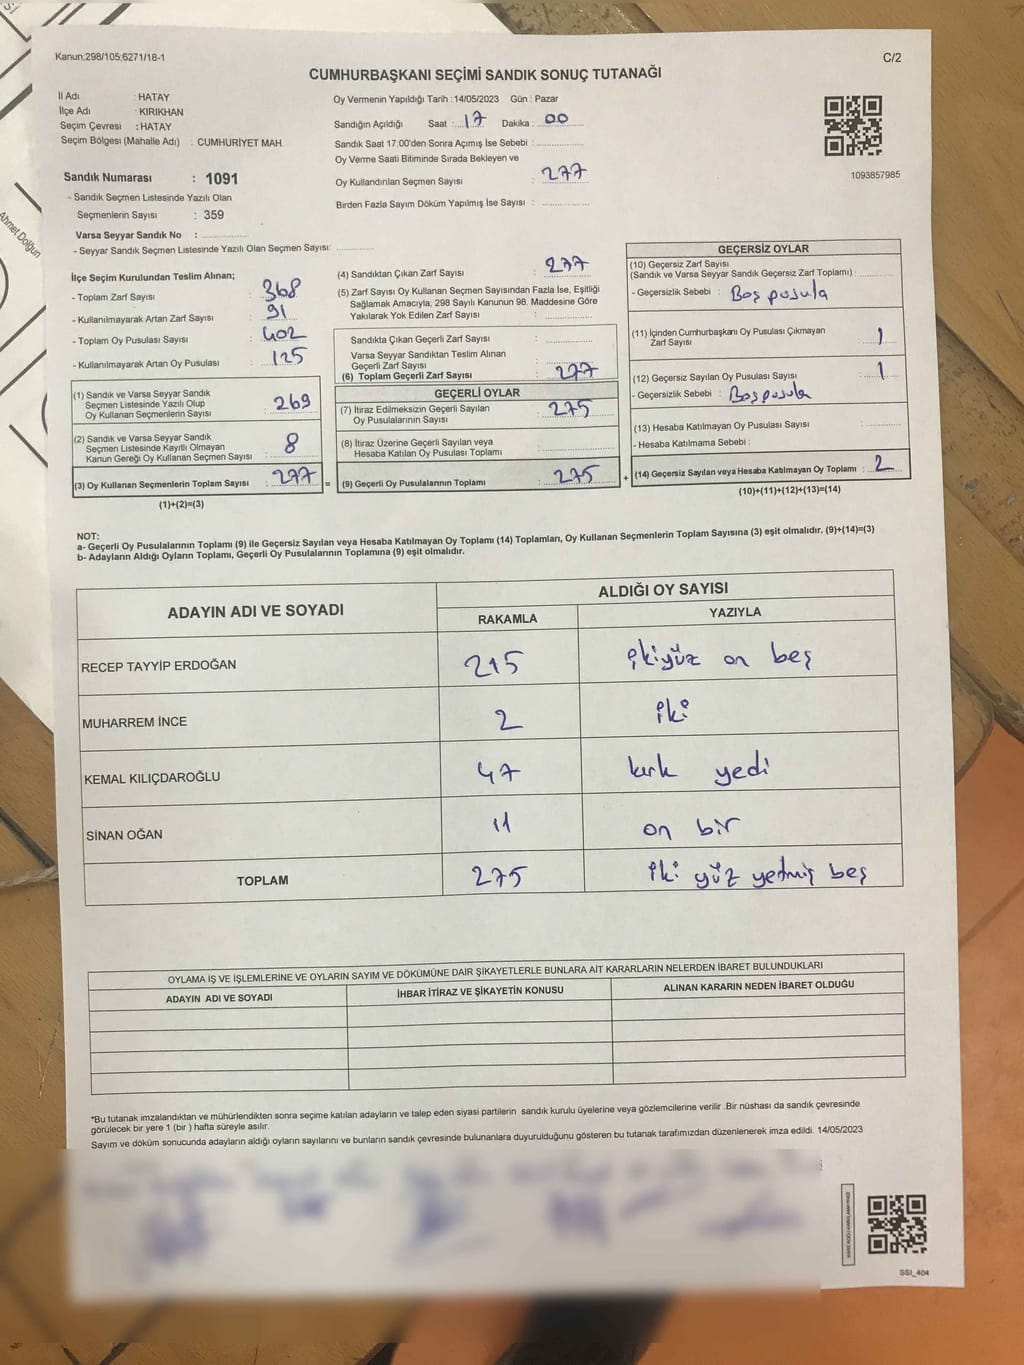 Kanun;298/105;6271/18-1
C/2
CUMHURBAŞKANI SEÇİMİ SANDIK SONUÇ TUTANAĞI
İl Adı : HATAY
İlçe Adı : KIRIKHAN
Seçim Çevresi : HATAY
Seçim Bölgesi (Mahalle Adı) : CUMHURİYET MAH.
Oy Vermenin Yapıldığı Tarih : 14/05/2023 Gün : Pazar
Sandığın Açıldığı Saat : 17 Dakika : 00
Sandık Saat 17:00'den Sonra Açımış İse Sebebi :
Oy Verme Saati Bitiminde Sırada Bekleyen ve
Oy Kullandırılan Seçmen Sayısı : 277
Birden Fazla Sayım Döküm Yapılmış İse Sayısı :
1093857985
Sandık Numarası : 1091
- Sandık Seçmen Listesinde Yazılı Olan
Seçmenlerin Sayısı : 359
Varsa Seyyar Sandık No :
- Seyyar Sandık Seçmen Listesinde Yazılı Olan Seçmen Sayısı:
Ahmet Dolğun
İlçe Seçim Kurulundan Teslim Alınan;
- Toplam Zarf Sayısı : 368
- Kullanılmayarak Artan Zarf Sayısı : 91
- Toplam Oy Pusulası Sayısı : 402
- Kullanılmayarak Artan Oy Pusulası : 125
(1) Sandık ve Varsa Seyyar Sandık
Seçmen Listesinde Yazılı Olup
Oy Kullanan Seçmenlerin Sayısı : 269
(2) Sandık ve Varsa Seyyar Sandık
Seçmen Listesinde Kayıtlı Olmayan
Kanun Gereği Oy Kullanan Seçmen Sayısı : 8
(3) Oy Kullanan Seçmenlerin Toplam Sayısı : 277 =
(1)+(2)=(3)
(4) Sandıktan Çıkan Zarf Sayısı : 277
(5) Zarf Sayısı Oy Kullanan Seçmen Sayısından Fazla İse, Eşitliği
Sağlamak Amacıyla; 298 Sayılı Kanunun 98. Maddesine Göre
Yakılarak Yok Edilen Zarf Sayısı :
Sandıkta Çıkan Geçerli Zarf Sayısı :
Varsa Seyyar Sandıktan Teslim Alınan
Geçerli Zarf Sayısı :
(6) Toplam Geçerli Zarf Sayısı : 277
GEÇERLİ OYLAR
(7) İtiraz Edilmeksizin Geçerli Sayılan
Oy Pusulalarının Sayısı : 275
(8) İtiraz Üzerine Geçerli Sayılan veya
Hesaba Katılan Oy Pusulası Toplamı :
(9) Geçerli Oy Pusulalarının Toplamı : 275 +
GEÇERSİZ OYLAR
(10) Geçersiz Zarf Sayısı
(Sandık ve Varsa Seyyar Sandık Geçersiz Zarf Toplamı) :
- Geçersizlik Sebebi : Boş pusula
(11) İçinden Cumhurbaşkanı Oy Pusulası Çıkmayan
Zarf Sayısı : 1
(12) Geçersiz Sayılan Oy Pusulası Sayısı : 1
- Geçersizlik Sebebi : Boş pusula
(13) Hesaba Katılmayan Oy Pusulası Sayısı :
- Hesaba Katılmama Sebebi :
(14) Geçersiz Sayılan veya Hesaba Katılmayan Oy Toplamı : 2
(10)+(11)+(12)+(13)=(14)
NOT:
a- Geçerli Oy Pusulalarının Toplamı (9) ile Geçersiz Sayılan veya Hesaba Katılmayan Oy Toplamı (14) Toplamları, Oy Kullanan Seçmenlerin Toplam Sayısına (3) eşit olmalıdır. (9)+(14)=(3)
b- Adayların Aldığı Oyların Toplamı, Geçerli Oy Pusulalarının Toplamına (9) eşit olmalıdır.
ADAYIN ADI VE SOYADI
ALDIĞI OY SAYISI
RAKAMLA YAZIYLA
RECEP TAYYİP ERDOĞAN 215 ikiyüz on beş
MUHARREM İNCE 2 iki
KEMAL KILIÇDAROĞLU 47 kırk yedi
SİNAN OĞAN 11 on bir
TOPLAM 275 iki yüz yetmiş beş
OYLAMA İŞ VE İŞLEMLERİNE VE OYLARIN SAYIM VE DÖKÜMÜNE DAİR ŞİKAYETLERLE BUNLARA AİT KARARLARIN NELERDEN İBARET BULUNDUKLARI
ADAYIN ADI VE SOYADI İHBAR İTİRAZ VE ŞİKAYETİN KONUSU ALINAN KARARIN NEDEN İBARET OLDUĞU
*Bu tutanak imzalandıktan ve mühürlendikten sonra seçime katılan adayların ve talep eden siyasi partilerin sandık kurulu üyelerine veya gözlemcilerine verilir .Bir nüshası da sandık çevresinde
görülecek bir yere 1 (bir ) hafta süreyle asılır.
Sayım ve döküm sonucunda adayların aldığı oyların sayılarını ve bunların sandık çevresinde bulunanlara duyurulduğunu gösteren bu tutanak tarafımızdan düzenlenerek imza edildi. 14/05/2023
SSI_404